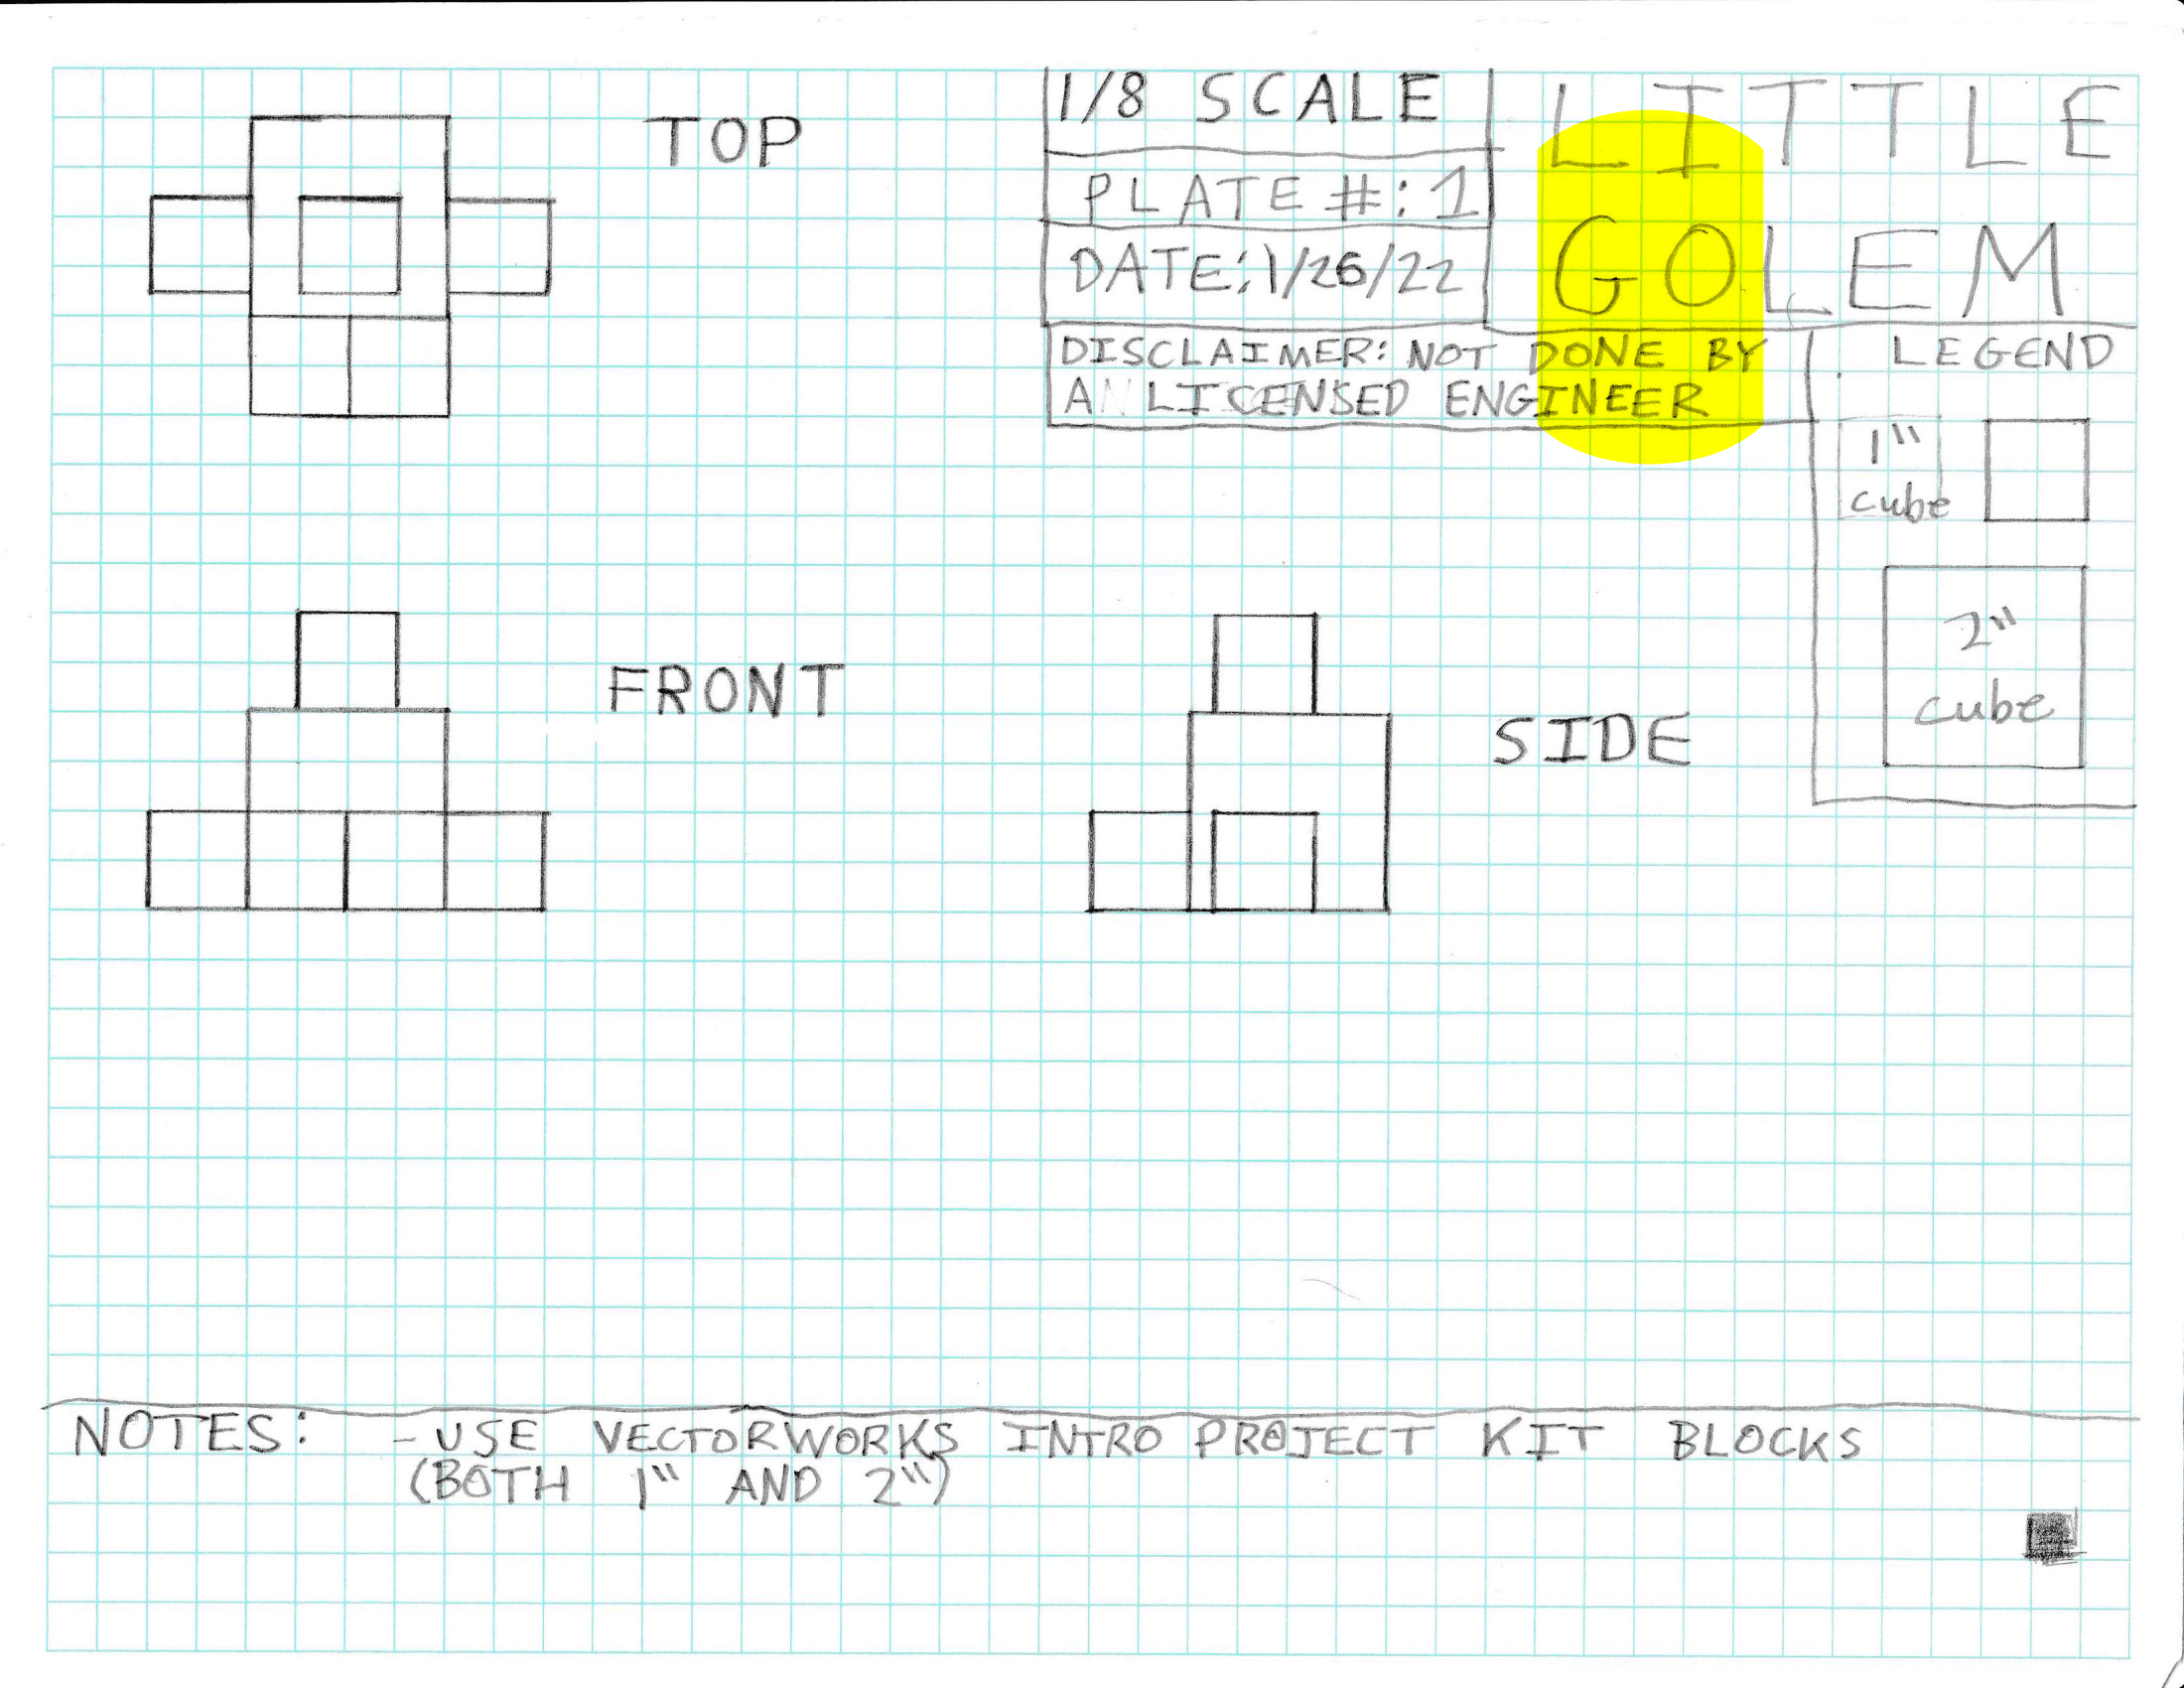 TOP
1/8 SCALE
PLATE #: 1
DATE: 1/26/22
LITTLE
GOLEM
DISCLAIMER: NOT DONE BY
A LICENSED ENGINEER
LEGEND
1"
cube
2"
cube
FRONT
SIDE
NOTES: - USE VECTORWORKS INTRO PROJECT KIT BLOCKS
(BOTH 1" AND 2")